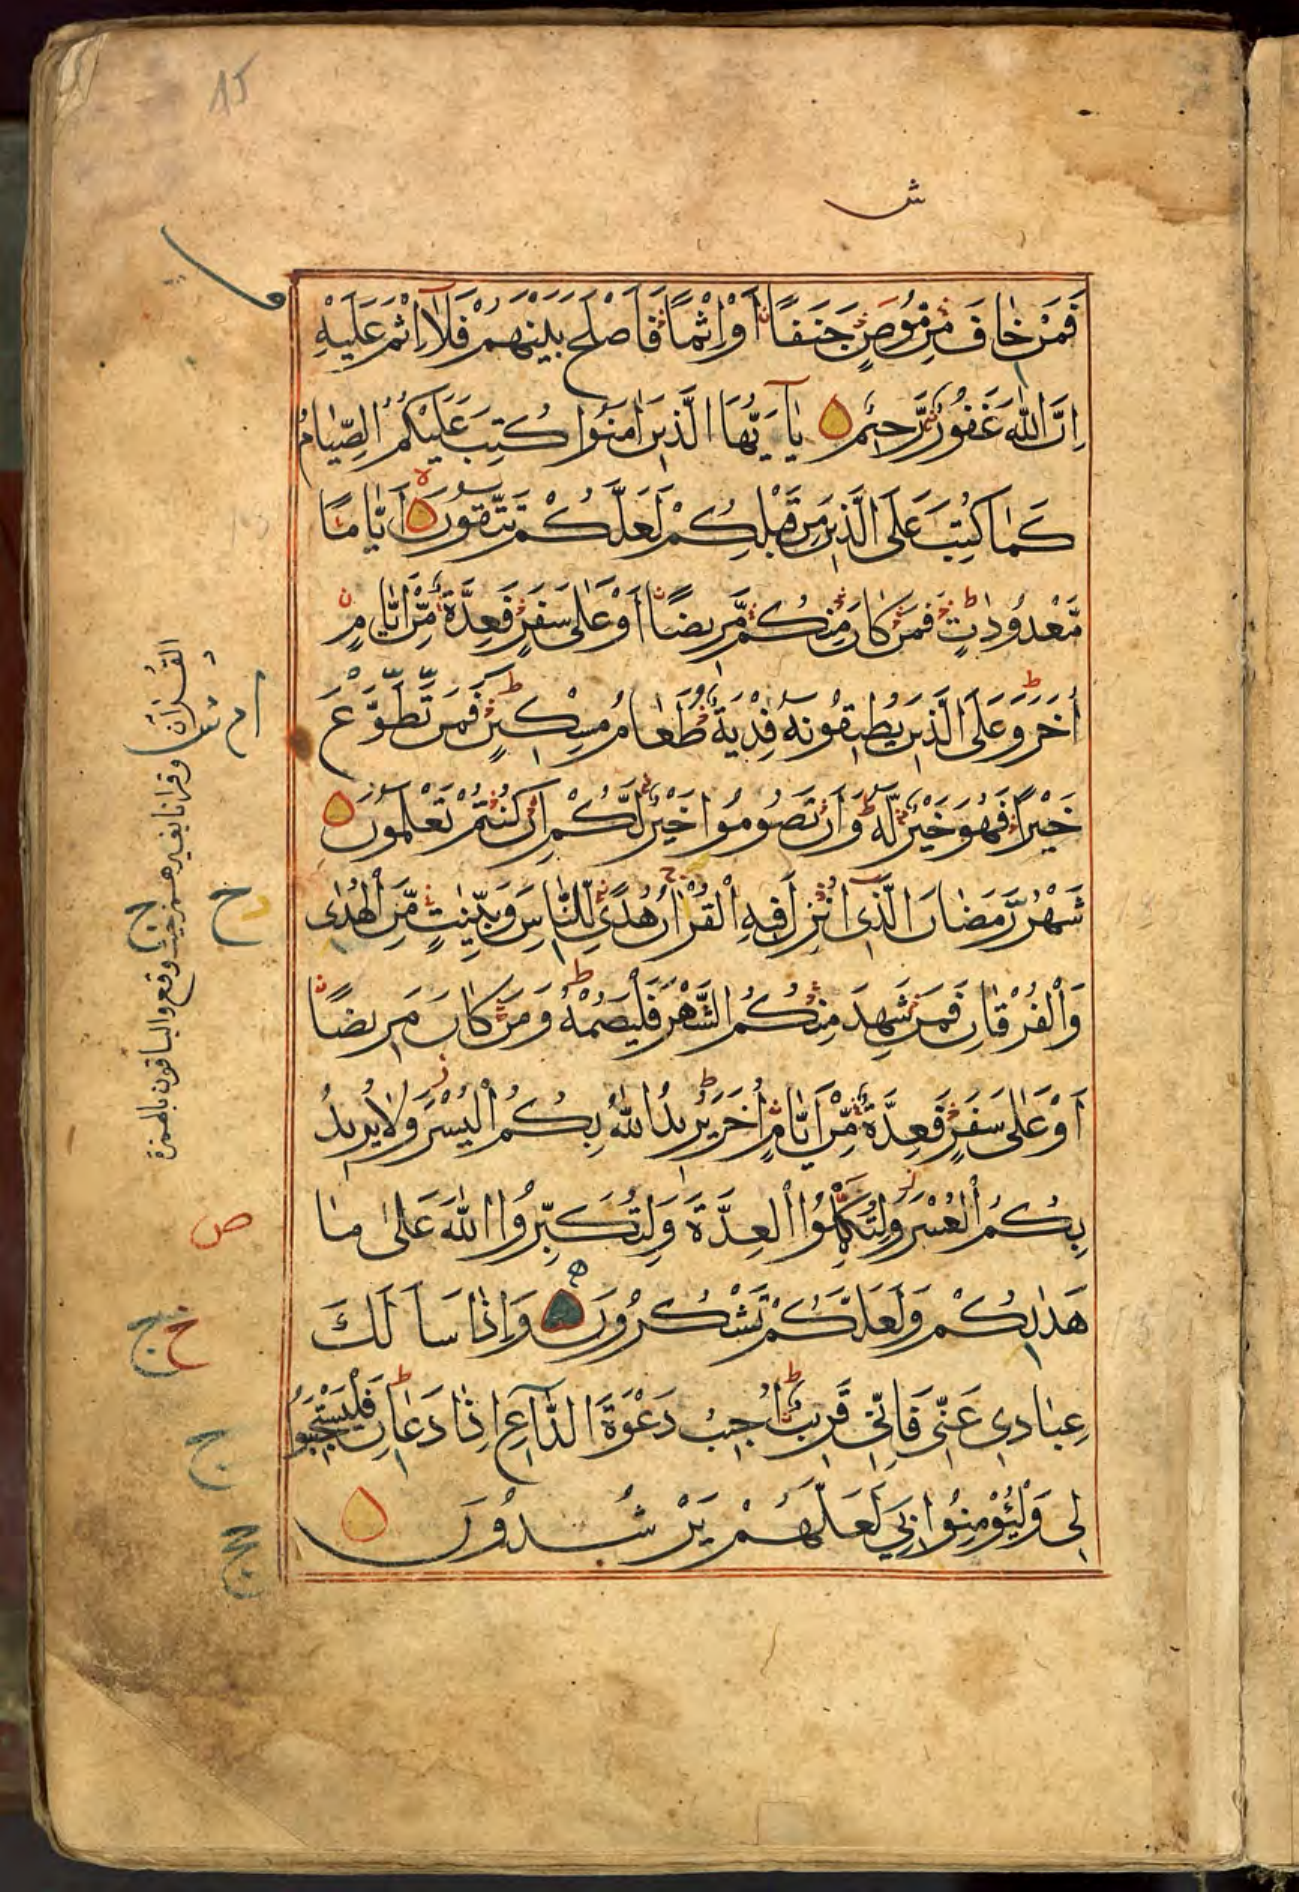 15
ش
فَمَنْ خَافَ مِنْ مُوصٍ جَنَفًا أَوْ اِثْمًا فَاَصْلَحَ بَيْنَهُمْ فَلَا اِثْمَ عَلَيْهِ
اِنَّ اللّٰهَ غَفُورٌ رَّحِيْمٌ يٰٓاَيُّهَا الَّذِيْنَ اٰمَنُوْا كُتِبَ عَلَيْكُمُ الصِّيَامُ
كَمَا كُتِبَ عَلَى الَّذِيْنَ مِنْ قَبْلِكُمْ لَعَلَّكُمْ تَتَّقُوْنَ اَيَّامًا
مَّعْدُوْدَاتٍ فَمَنْ كَانَ مِنْكُمْ مَّرِيْضًا اَوْ عَلٰى سَفَرٍ فَعِدَّةٌ مِّنْ اَيَّامٍ
اُخَرَ وَعَلَى الَّذِيْنَ يُطِيْقُوْنَهٗ فِدْيَةٌ طَعَامُ مِسْكِيْنٍ فَمَنْ تَطَوَّعَ
خَيْرًا فَهُوَ خَيْرٌ لَّهٗ وَاَنْ تَصُوْمُوْا خَيْرٌ لَّكُمْ اِنْ كُنْتُمْ تَعْلَمُوْنَ
شَهْرُ رَمَضَانَ الَّذِيْٓ اُنْزِلَ فِيْهِ الْقُرْاٰنُ هُدًى لِّلنَّاسِ وَبَيِّنٰتٍ مِّنَ الْهُدٰى
وَالْفُرْقَانِ فَمَنْ شَهِدَ مِنْكُمُ الشَّهْرَ فَلْيَصُمْهُ وَمَنْ كَانَ مَرِيْضًا
اَوْ عَلٰى سَفَرٍ فَعِدَّةٌ مِّنْ اَيَّامٍ اُخَرَ يُرِيْدُ اللّٰهُ بِكُمُ الْيُسْرَ وَلَا يُرِيْدُ
بِكُمُ الْعُسْرَ وَلِتُكْمِلُوا الْعِدَّةَ وَلِتُكَبِّرُوا اللّٰهَ عَلٰى مَا
هَدٰىكُمْ وَلَعَلَّكُمْ تَشْكُرُوْنَ وَاِذَا سَاَلَكَ
عِبَادِيْ عَنِّيْ فَاِنِّيْ قَرِيْبٌ اُجِيْبُ دَعْوَةَ الدَّاعِ اِذَا دَعَانِ فَلْيَسْتَجِيْبُوْا
لِيْ وَلْيُؤْمِنُوْا بِيْ لَعَلَّهُمْ يَرْشُدُوْنَ
القُرَان وقرانا بغير همز حيث وقع والباقون بالهمزة
ج
خ
ص
خ ج
ج
ج ج